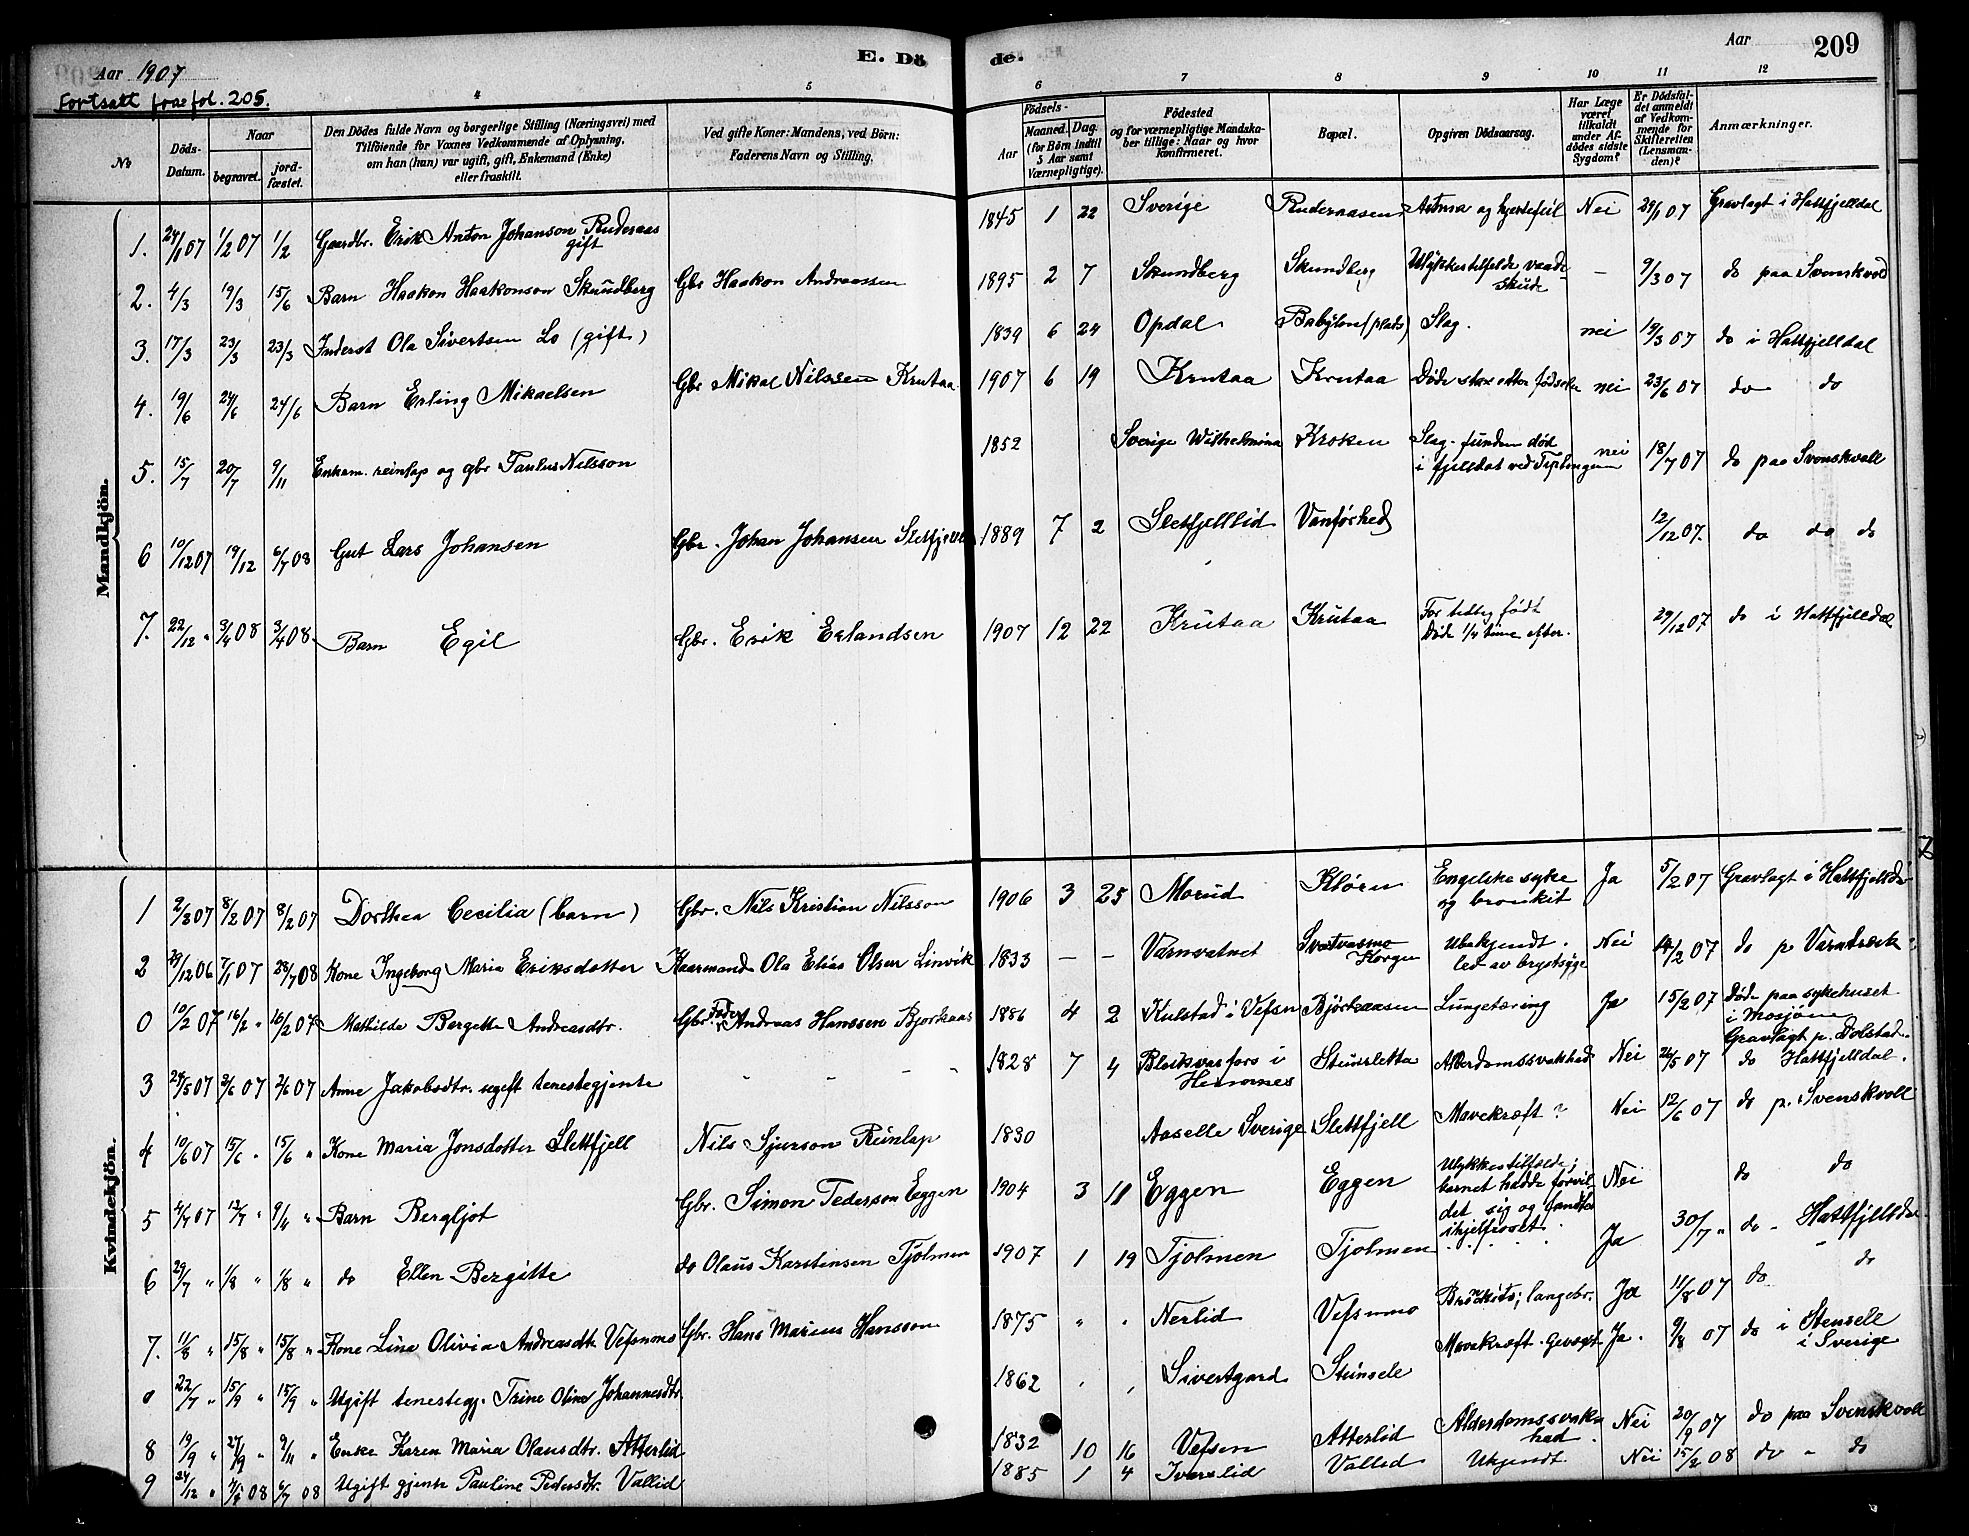 Aar 1907
Fortsatt fraa fol. 205.
E. Dö
de.
Aar
209
4
5
6
7
8
9
10
11
12
№
Döds-Datum.
Naar
begravet.
jordfæstet.
Den Dödes fulde Navn og borgerlige Stilling (Næringsvei) med
Tilföiende for Voxnes Vedkommende af Oplysning,
om han (hun) var ugift, gift, Enkemand (Enke)
eller fraskilt.
Ved gifte Koner: Mandens, ved Börn:
Faderens Navn og Stilling.
Födsels-
Aar
Maaned. Dag.
(for Börn indtil 5 Aar samt Værnepligtige).
Födested
og for værnepligtige Mandskaber tillige: Naar og hvor konfirmeret.
Bopæl.
Opgiven Dödsaarsag.
Har Læge været tilkaldt under Afdödes sidste Sygdom?
Er Dödsfaldet anmeldt af Vedkommende for Skifteretten (Lensmanden)?
Anmærkninger.
Mandkjön.
1. 24/1 07 1/2 07 1/2 Gaardbr. Erik Anton Johanson Ruderaas gift 1845 1 22 Sverige Ruderaasen Astma og hjertefeil Nei 29/1 07 Gravlagt i Hattfjelldal
2. 4/3 19/3 15/6 Barn Haakon Haakonson Skundberg Gbr Haakon Andreassen 1895 2 7 Skundberg Skundberg Ulykkestilfelde, vaadeskude – 9/3 07 do paa Svenskvold
3. 17/3 23/3 23/3 Inderst Ola Sivertsen Lo (gift) 1839 6 24 Opdal Babylon (plads) Slag. nei 19/3 07 do i Hattfjelldal
4. 19/6 24/6 24/6 Barn Erling Mikaelsen Gbr Mikal Nilssen Krutaa 1907 6 19 Krutaa Krutaa Døde strax etter fødselen nei 23/6 07 do do
5. 15/7 20/7 9/11 Enkem. reinlap og gbr Paulus Nilsson 1852 Sverige Wilhelmina Kroken Slag. funden død i fjelldet ved Tiplingen nei 18/7 07 do paa Svenskvoll
6 10/12 07 19/12 6/7 08 Gut Lars Johansen Gbr. Johan Johansen Sletfjelllid 1889 7 2 Sletfjelllid Vanførhed 12/12 07. do do do
7. 22/12 " 3/4 08 3/4 08 Barn Egil Gbr. Erik Erlandsen 1907 12 22 Krutaa Krutaa For tidlig født Døde 1/4 time efter. 29/12 07 do i Hattfjelldal
Kvindekjön.
1 2/2 07 8/2 07 8/2 07 Dorthea Cecilia (barn) Gbr. Nils Kristian Nilsson 1906 3 25 Morud Kløren Engelske syke og bronkit Ja 5/2 07 Gravlagt i Hattfjelldal
2 29/12 06 7/1 07 28/7 08 Kone Ingeborg Maria Eriksdotter Kaarmand Ola Elias Olsen Linvik 1833 – – Varnvatnet Svartvasmo Korgen Ubekjendt. led av brystsyge Nei 14/2 07 do p Varntræsk
0 10/2 07 16/2 " 16/2 07 Mathilde Bergette Andreasdtr. Gbr. Fader: Andreas Hanssen Bjorkaas 1886 4 2 Kulstad i Vefsn Bjørkaasen Lungetæring Ja 15/2 07 Døde paa sykehuset i Mosjøen Gravlagt p. Dolstad.
3 24/5 07 2/6 07 2/6 07 Anne Jakobsdtr. ugift tenestegjente – – – – 1828 7 4 Bleikvasfors i Hemnes Steinsletta Alderdomssvakhed Nei 26/5 07 do Hattfjelldal.
4 10/6 07 15/6 " 15/6 " Kone Maria Jonsdotter Slettfjell Nils Sjurson Reinlap 1830 Aaselle Sverige Slettfjell Mavekræft ? Nei 12/6 07 do p. Svenskvoll
5 4/7 07 12/7 " 9/4 " Barn Bergljot Gbr. Simon Pederson Eggen 1904 3 11 Eggen Eggen Ulykkestilfælde; barnet hadde forvildet sig og fandtes ihjelfrosset. Nei do do
6 29/7 " 1/8 " 1/8 " do Ellen Bergitte do Olaus Karstensen Tjolmen 1907 1 19 Tjolmen Tjolmen Ja 30/7 " do – Hattfjelldal
7. 11/8 " 15/8 " 15/8 " Kone Lina Olivia Andreasdt. Vefsnmo Gbr. Hans Marius Hansson 1875 " " Nerlid Vefsnmo Bronkits; langebr. Ja 11/8 07 do – do
0 22/7 " 15/9 " 15/9 " Ugift tenestegj. Trine Oline Johannesdtr. 1862 " " Sivertgard Steinsele Mavekræft. Ja. 9/8 07 do i Stensele i Sverige
8 19/9 " 27/9 " 9/11 " Enke Karen Maria Olausdtr. Atterlid 1832 10 16 Vefsen Atterlid Alderdomssvakhed Nei 20/9 07 do paa Svenskvoll
9 24/12 " 08 6/7 08 Ugift gjente Pauline Pedersdtr. Vallid 1885 1 4 Iverslid Vallid Ukjendt. Nei 15/2 08 do – do